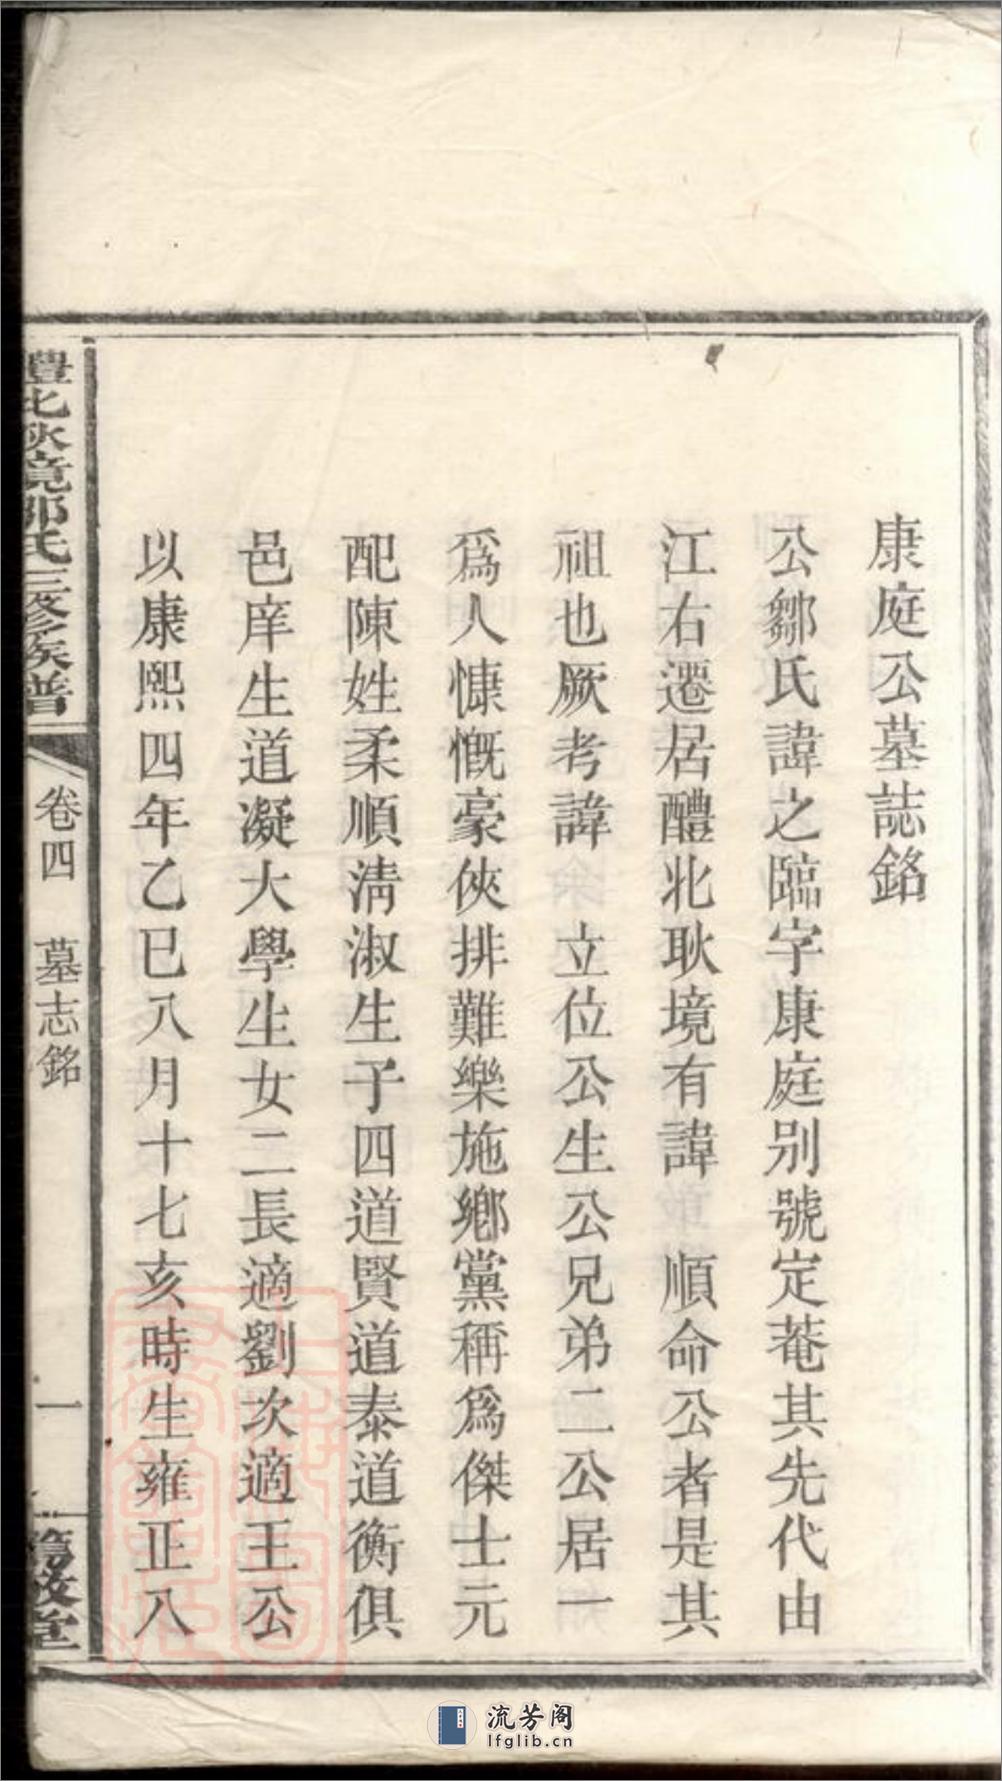 康庭公墓誌銘
公鄒氏諱之臨字康庭别號定菴其先代由
江右遷居醴北耿境有諱　順命公者是其
祖也厥考諱　立位公生公兄弟二公居一
爲人慷慨豪俠排難樂施鄉黨稱爲傑士元
配陳姓柔順淸淑生子四道賢道泰道衡俱
邑庠生道凝大學生女二長適劉次適王公
以康熙四年乙巳八月十七亥時生雍正八
醴北耿境鄒氏三修族譜
卷四　墓志銘
一
堂
流芳阁
lfglib.cn